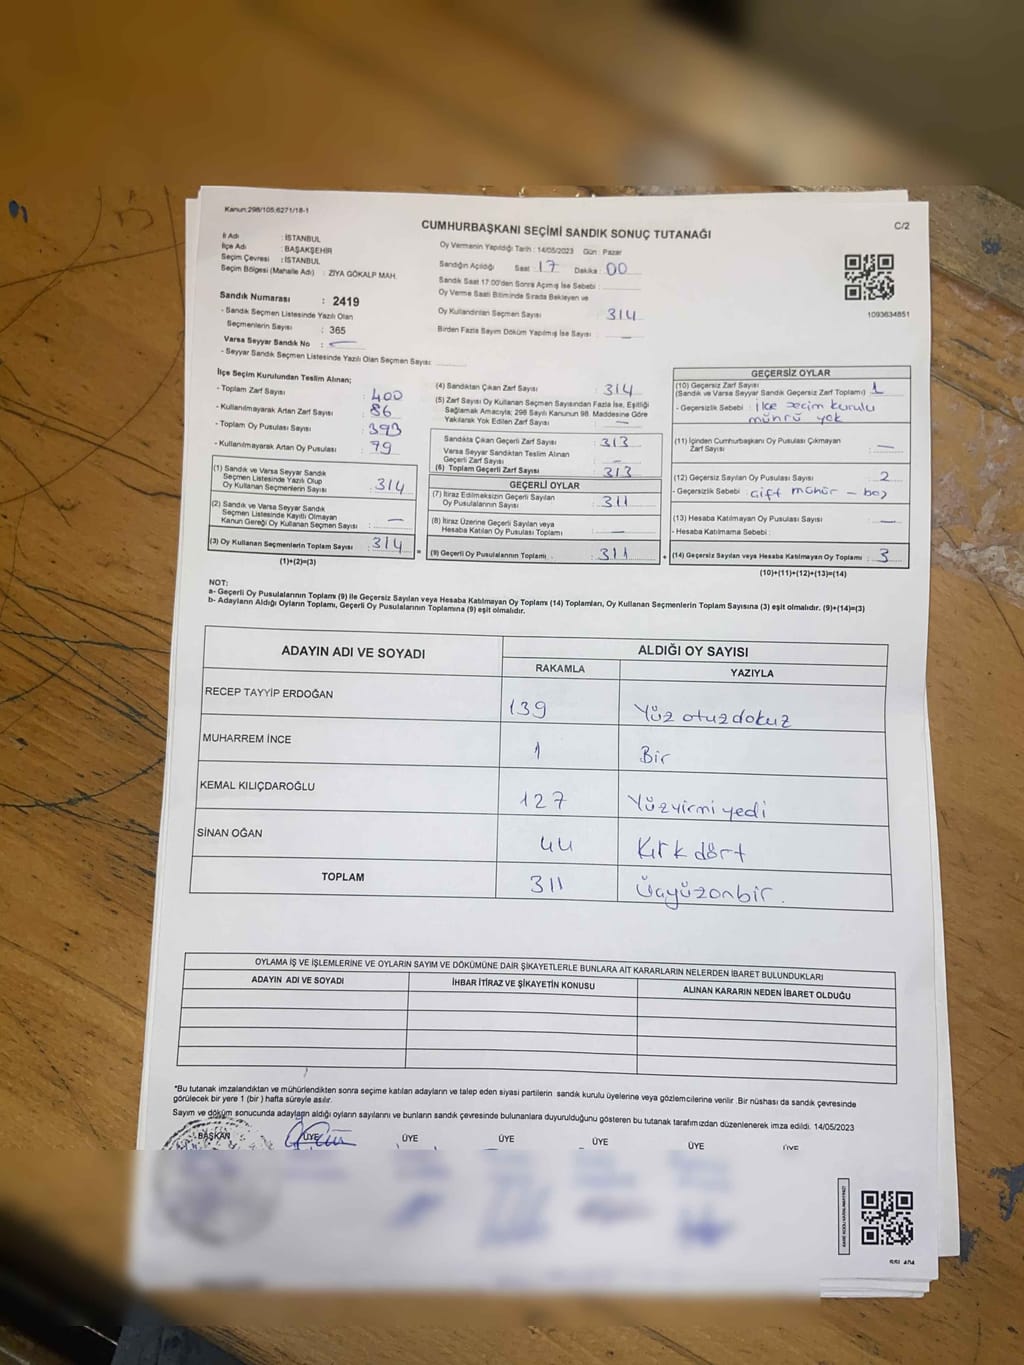 Kanun:298/105;6271/18-1
C/2
CUMHURBAŞKANI SEÇİMİ SANDIK SONUÇ TUTANAĞI
İl Adı : İSTANBUL
İlçe Adı : BAŞAKŞEHİR
Seçim Çevresi : İSTANBUL
Seçim Bölgesi (Mahalle Adı) : ZİYA GÖKALP MAH.
Sandık Numarası : 2419
- Sandık Seçmen Listesinde Yazılı Olan
Seçmenlerin Sayısı : 365
Varsa Seyyar Sandık No : —
- Seyyar Sandık Seçmen Listesinde Yazılı Olan Seçmen Sayısı:
Oy Vermenin Yapıldığı Tarih : 14/05/2023 Gün : Pazar
Sandığın Açıldığı Saat 17 Dakika : 00
Sandık Saat 17:00'den Sonra Açımış İse Sebebi :
Oy Verme Saati Bitiminde Sırada Bekleyen ve
Oy Kullandırılan Seçmen Sayısı : 314
Birden Fazla Sayım Döküm Yapılmış İse Sayısı : —
1093634851
İlçe Seçim Kurulundan Teslim Alınan;
- Toplam Zarf Sayısı : 400
- Kullanılmayarak Artan Zarf Sayısı : 86
- Toplam Oy Pusulası Sayısı : 393
- Kullanılmayarak Artan Oy Pusulası : 79
(1) Sandık ve Varsa Seyyar Sandık
Seçmen Listesinde Yazılı Olup
Oy Kullanan Seçmenlerin Sayısı : 314
(2) Sandık ve Varsa Seyyar Sandık
Seçmen Listesinde Kayıtlı Olmayan
Kanun Gereği Oy Kullanan Seçmen Sayısı : —
(3) Oy Kullanan Seçmenlerin Toplam Sayısı : 314
(1)+(2)=(3)
(4) Sandıktan Çıkan Zarf Sayısı : 314
(5) Zarf Sayısı Oy Kullanan Seçmen Sayısından Fazla İse, Eşitliği
Sağlamak Amacıyla; 298 Sayılı Kanunun 98. Maddesine Göre
Yakılarak Yok Edilen Zarf Sayısı : —
Sandıkta Çıkan Geçerli Zarf Sayısı : 313
Varsa Seyyar Sandıktan Teslim Alınan
Geçerli Zarf Sayısı : —
(6) Toplam Geçerli Zarf Sayısı : 313
GEÇERLİ OYLAR
(7) İtiraz Edilmeksizin Geçerli Sayılan
Oy Pusulalarının Sayısı : 311
(8) İtiraz Üzerine Geçerli Sayılan veya
Hesaba Katılan Oy Pusulası Toplamı : —
= (9) Geçerli Oy Pusulalarının Toplamı : 311 +
GEÇERSİZ OYLAR
(10) Geçersiz Zarf Sayısı
(Sandık ve Varsa Seyyar Sandık Geçersiz Zarf Toplamı) : 1
- Geçersizlik Sebebi : ilçe seçim kurulu
mührü yok
(11) İçinden Cumhurbaşkanı Oy Pusulası Çıkmayan
Zarf Sayısı : —
(12) Geçersiz Sayılan Oy Pusulası Sayısı : 2
- Geçersizlik Sebebi : çift mühür - boş
(13) Hesaba Katılmayan Oy Pusulası Sayısı : —
- Hesaba Katılmama Sebebi :
(14) Geçersiz Sayılan veya Hesaba Katılmayan Oy Toplamı : 3
(10)+(11)+(12)+(13)=(14)
NOT:
a- Geçerli Oy Pusulalarının Toplamı (9) ile Geçersiz Sayılan veya Hesaba Katılmayan Oy Toplamı (14) Toplamları, Oy Kullanan Seçmenlerin Toplam Sayısına (3) eşit olmalıdır. (9)+(14)=(3)
b- Adayların Aldığı Oyların Toplamı, Geçerli Oy Pusulalarının Toplamına (9) eşit olmalıdır.
ADAYIN ADI VE SOYADI
ALDIĞI OY SAYISI
RAKAMLA YAZIYLA
RECEP TAYYİP ERDOĞAN 139 Yüz otuzdokuz
MUHARREM İNCE 1 Bir
KEMAL KILIÇDAROĞLU 127 Yüzyirmi yedi
SİNAN OĞAN 44 Kırk dört
TOPLAM 311 Üçyüzonbir.
OYLAMA İŞ VE İŞLEMLERİNE VE OYLARIN SAYIM VE DÖKÜMÜNE DAİR ŞİKAYETLERLE BUNLARA AİT KARARLARIN NELERDEN İBARET BULUNDUKLARI
ADAYIN ADI VE SOYADI İHBAR İTİRAZ VE ŞİKAYETİN KONUSU ALINAN KARARIN NEDEN İBARET OLDUĞU
*Bu tutanak imzalandıktan ve mühürlendikten sonra seçime katılan adayların ve talep eden siyasi partilerin sandık kurulu üyelerine veya gözlemcilerine verilir. Bir nüshası da sandık çevresinde
görülecek bir yere 1 (bir ) hafta süreyle asılır.
Sayım ve döküm sonucunda adayların aldığı oyların sayılarını ve bunların sandık çevresinde bulunanlara duyurulduğunu gösteren bu tutanak tarafımızdan düzenlenerek imza edildi. 14/05/2023
BAŞKAN ÜYE ÜYE ÜYE ÜYE ÜYE ÜYE